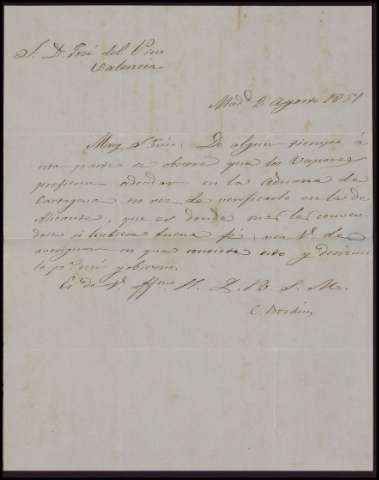 S. D. José del Pino
Valencia.
Mad.d 2 Agosto 1851
Muy S. mio: De algun tiempo á
esta parte se observa que los vapores
prefieren adeudar en la Aduana de
Cartagena en vez de verificarlo en la de
Alicante, que es donde mas les conven-
dria si hubiera buena fé; vea V. de
averiguar en que consiste esto y decirme-
lo p.a mi gobierno.
Es de V. affmo S. Q. B. S. M.
C. Bordiu